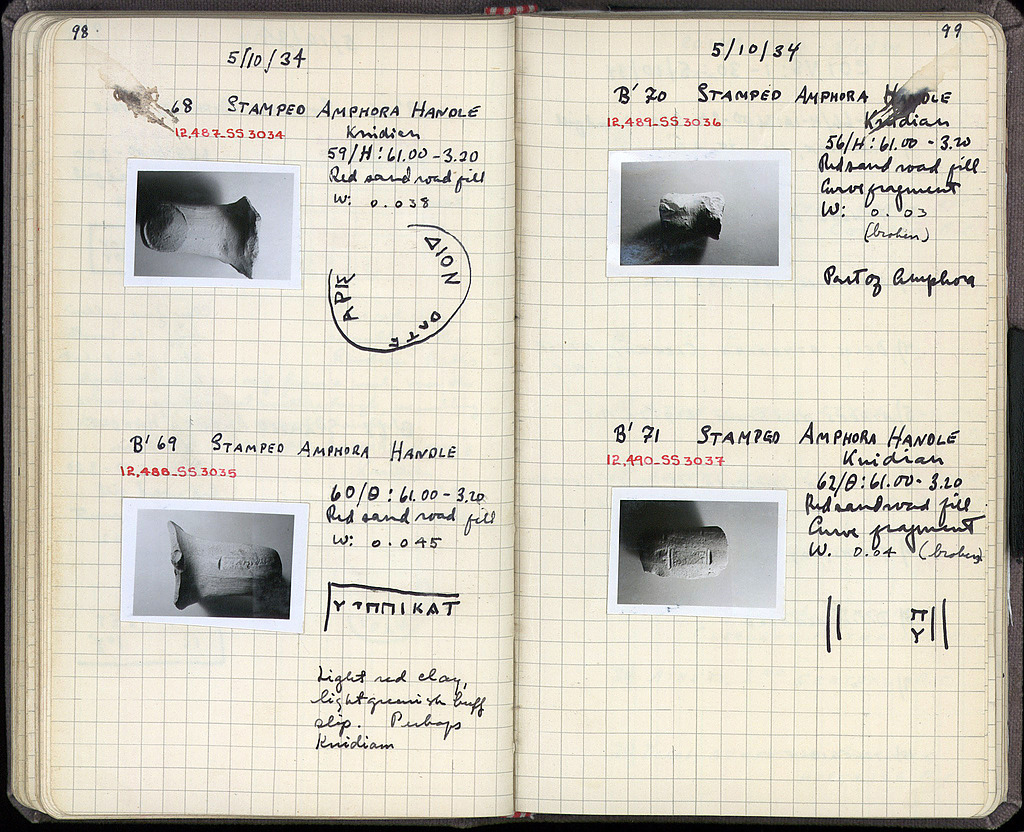 98
5/10/34
68 STAMPED AMPHORA HANDLE
12,487-SS 3034
Knidian
59/H : 61.00 - 3.20
Red sand road fill
W: 0.038
ΔΙΟΝ
ΑΡΙΣ
B' 69 STAMPED AMPHORA HANDLE
12,488-SS 3035
60/Θ : 61.00 - 3.20
Red sand road fill
W: 0.045
ΠΠΙΚΑΤ
Light red clay,
light greenish buff
slip. Perhaps
Knidian
99
5/10/34
B' 70 STAMPED AMPHORA HANDLE
12,489-SS 3036
Knidian
56/H : 61.00 - 3.20
Red sand road fill
Curve fragment
W: 0.03
(broken)
Part of Amphora
B' 71 STAMPED AMPHORA HANDLE
12,490-SS 3037
Knidian
62/Θ : 61.00 - 3.20
Red sand road fill
Curve fragment
W. 0.04 (broken)
Π
Υ